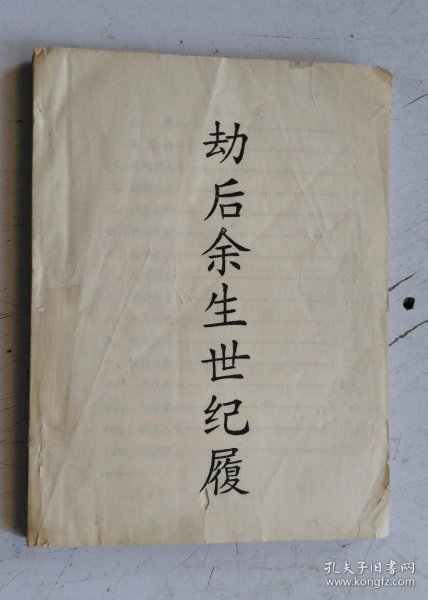 劫后余生世纪履
孔夫子旧书网
www.kongfz.com